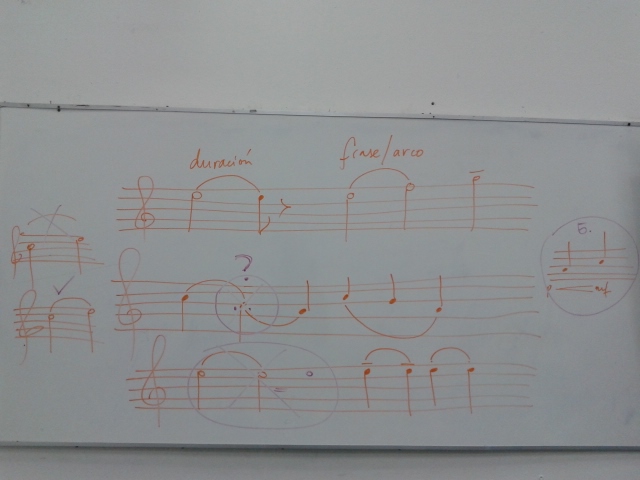 duración
frase/arco
?
5.
p mf